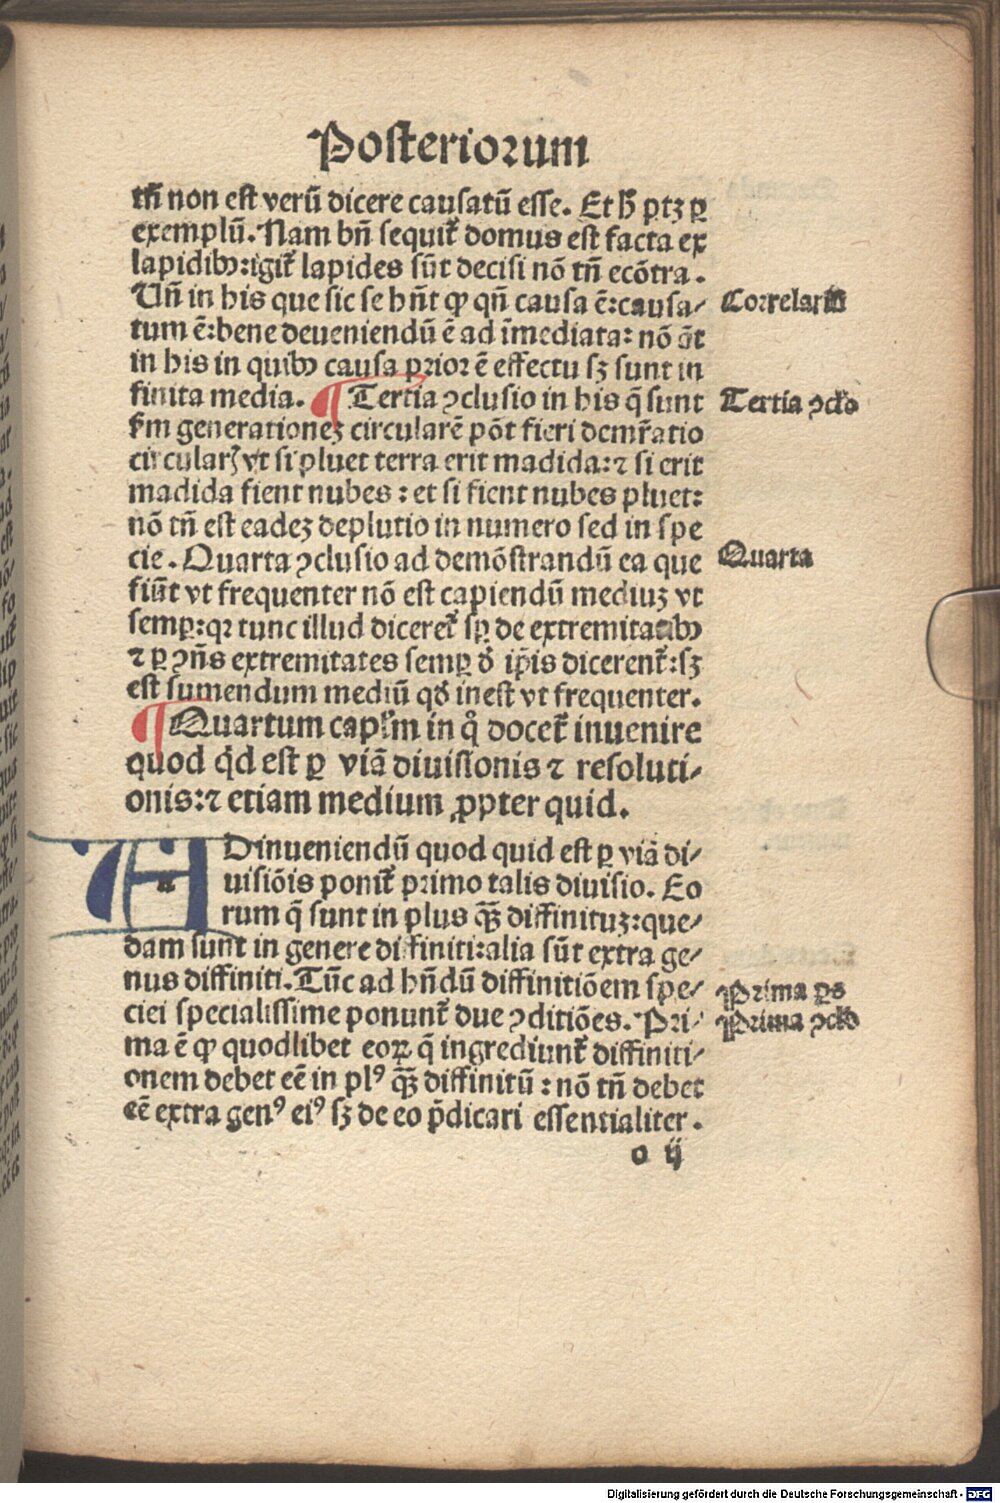 Posteriorum
tñ non est verũ dicere causatũ esse. Et h̄ ptꝫ ꝑ
exemplũ. Nam bñ sequit̃ domus est facta ex
lapidibꝰ: igit̃ lapides sũt decisi nõ tñ ecõtra.
Uñ in his que sic se hñt ꝙ qñ causa ẽ: causa/
tum ẽ: bene deueniendũ ẽ ad ĩmediata: nõ ãt
in his in quibꝰ causa prior ẽ effectu sꝫ sunt in
finita media. ¶ Tertia ꝯclusio in his q̃ sunt
ẜm generationeꝫ circularẽ põt fieri demr̃atio
circularꝭ vt si pluet terra erit madida: ⁊ si erit
madida fient nubes: et si fient nubes pluet:
nõ tñ est eadeꝫ deplutio in numero sed in spe
cie. Quarta ꝯclusio ad demõstrandũ ea que
fiũt vt frequenter nõ est capiendũ mediuꝫ vt
semꝑ: qꝛ tunc illud diceret̃ sꝑ de extremitatibꝰ
⁊ ꝑ ꝯñs extremitates semꝑ d̃ ip̃is dicerent̃: sꝫ
est sumendum mediũ qđ inest vt frequenter.
¶ Quartum capl̃m in q̊ docet̃ inuenire
quod q̇d est ꝑ viã diuisionis ⁊ resoluti/
onis: ⁊ etiam medium ꝓpter quid.
AD inueniendũ quod quid est ꝑ viã di/
uisiõis ponit̃ primo talis diuisio. Eo
rum q̃ sunt in plus qꝫ̃ diffinituꝫ: que/
dam sunt in genere diffiniti: alia sũt extra ge/
nus diffiniti. Tũc ad hñdũ diffinitiõem spe/
ciei specialissime ponunt̃ due ꝯditiões. Pri/
ma ẽ ꝙ quodlibet eoꝝ q̃ ingrediunt̃ diffiniti/
onem debet eẽ in plꝰ qꝫ̃ diffinitũ: nõ tñ debet
eẽ extra genꝰ eiꝰ sꝫ de eo p̃dicari essentialiter.
o ij
Correlariũ
Tertia ꝯclo
Quarta
Prima ꝑs
Prima ꝯclo
Digitalisierung gefördert durch die Deutsche Forschungsgemeinschaft - DFG